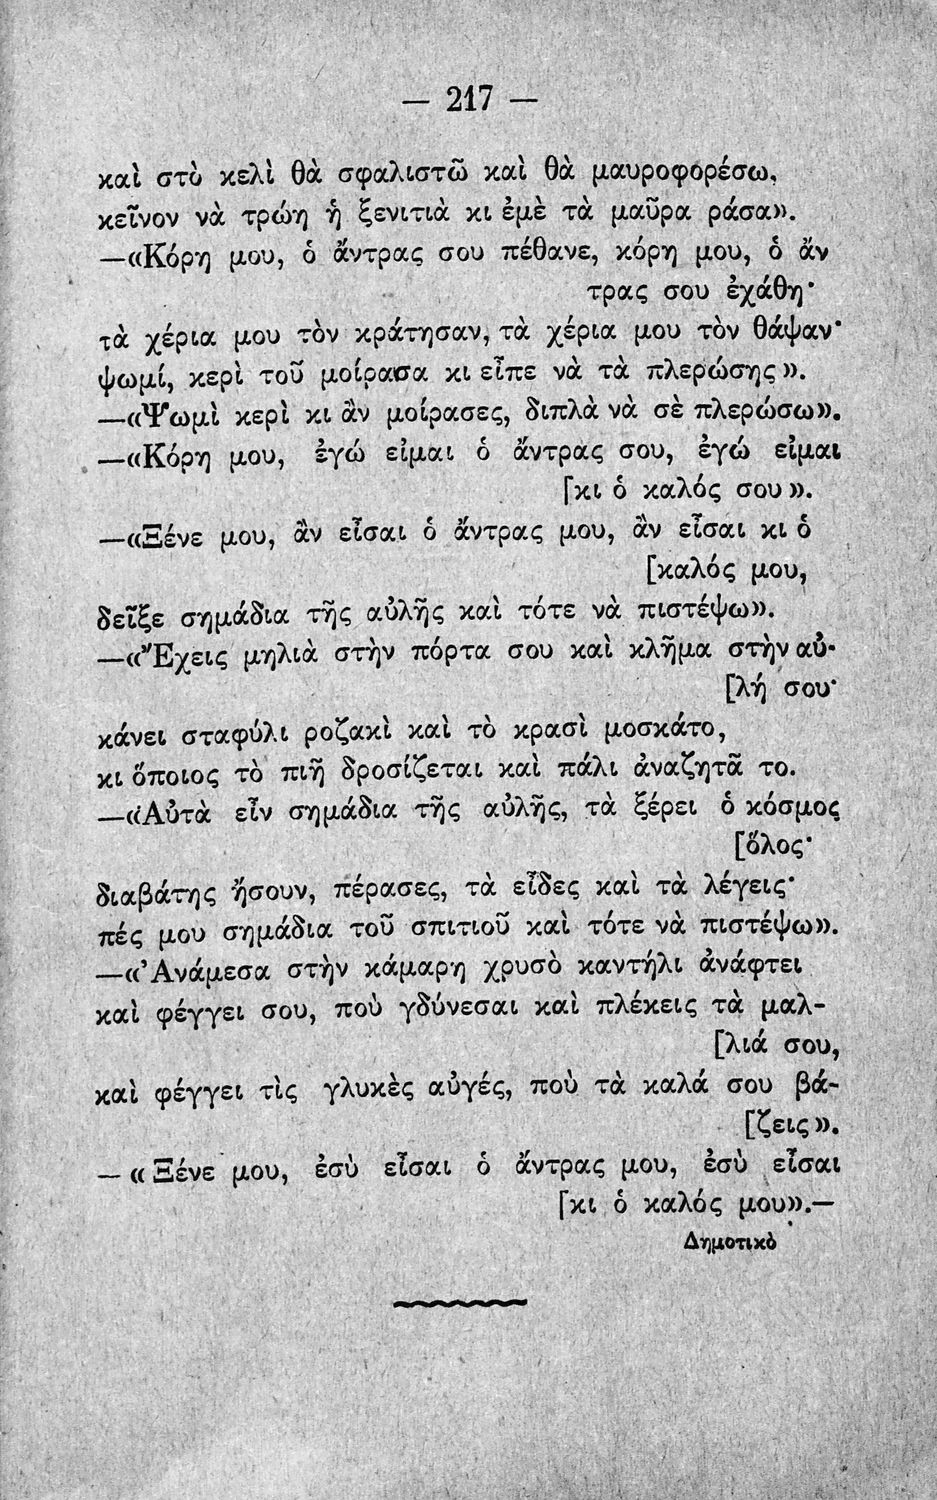 — 217 —
καὶ στὸ κελὶ θὰ σφαλιστῶ καὶ θὰ μαυροφορέσω,
κεῖνον νὰ τρώη ἡ ξενιτιὰ κι ἐμὲ τὰ μαῦρα ράσα».
—«Κόρη μου, ὁ ἄντρας σου πέθανε, κόρη μου, ὁ ἄν
τρας σου ἐχάθη·
τὰ χέρια μου τὸν κράτησαν, τὰ χέρια μου τὸν θάψαν·
ψωμί, κερὶ τοῦ μοίρασα κι εἶπε νὰ τὰ πλερώσης».
—«Ψωμὶ κερὶ κι ἂν μοίρασες, διπλὰ νὰ σὲ πλερώσω».
—«Κόρη μου, ἐγώ εἶμαι ὁ ἄντρας σου, ἐγώ εἶμαι
[κι ὁ καλός σου».
—«Ξένε μου, ἂν εἶσαι ὁ ἄντρας μου, ἂν εἶσαι κι ὁ
[καλός μου,
δεῖξε σημάδια τῆς αὐλῆς καὶ τότε νὰ πιστέψω».
—«Ἔχεις μηλιὰ στὴν πόρτα σου καὶ κλῆμα στὴν αὐ-
[λή σου·
κάνει σταφύλι ροζακὶ καὶ τὸ κρασὶ μοσκάτο,
κι ὅποιος τὸ πιῆ δροσίζεται καὶ πάλι ἀναζητᾶ το.
—«Αὐτὰ εἶν σημάδια τῆς αὐλῆς, τὰ ξέρει ὁ κόσμος
[ὅλος·
διαβάτης ἤσουν, πέρασες, τὰ εἶδες καὶ τὰ λέγεις·
πές μου σημάδια τοῦ σπιτιοῦ καὶ τότε νὰ πιστέψω».
—«Ἀνάμεσα στὴν κάμαρη χρυσὸ καντήλι ἀνάφτει
καὶ φέγγει σου, ποὺ γδύνεσαι καὶ πλέκεις τὰ μαλ-
[λιά σου,
καὶ φέγγει τὶς γλυκὲς αὐγές, ποὺ τὰ καλά σου βά-
[ζεις».
—«Ξένε μου, ἐσὺ εἶσαι ὁ ἄντρας μου, ἐσὺ εἶσαι
[κι ὁ καλός μου».—
Δημοτικὸ